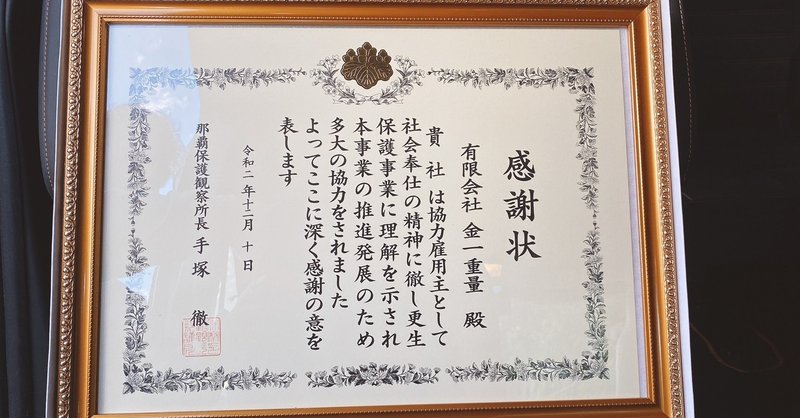 感謝状
有限会社 金一重量 殿
貴社は協力雇用主として
社会奉仕の精神に徹し更生
保護事業に理解を示され
本事業の推進発展のため
多大の協力をされました
よってここに深く感謝の意を
表します
令和二年十二月十日
那覇保護観察所長 手塚 徹